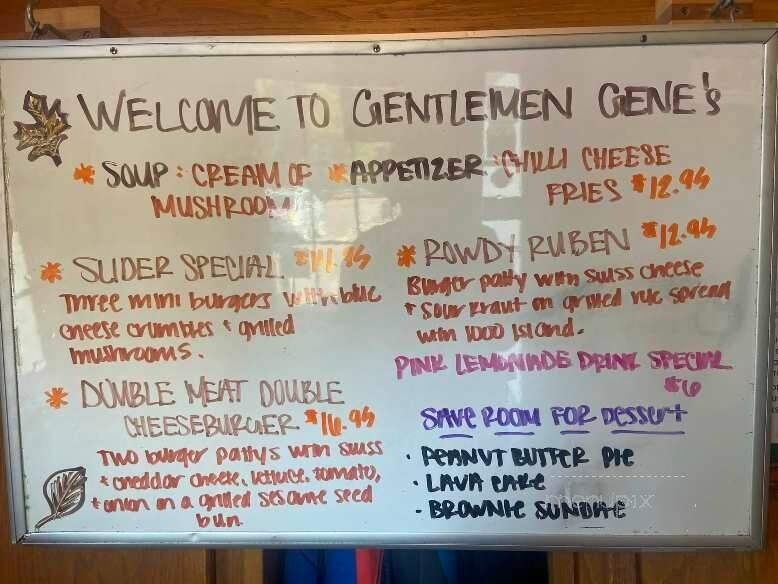 WELCOME TO GENTLEMEN GENE'S
* SOUP: CREAM OF MUSHROOM
* APPETIZER: CHILLI CHEESE FRIES $12.95
* SLIDER SPECIAL
Three mini burgers with blue
cheese crumbles + grilled
mushrooms.
* DOUBLE MEAT DOUBLE
CHEESEBURGER $16.95
Two burger pattys with swiss
+ cheddar cheese, lettuce, tomato,
+ onion on a grilled sesame seed
bun.
* ROWDY RUBEN $12.95
Burger patty with swiss cheese
+ sour kraut on grilled rye spread
with 1000 island.
PINK LEMONADE DRINK SPECIAL
$6
SAVE ROOM FOR DESSERT
• PEANUT BUTTER PIE
• LAVA CAKE
• BROWNIE SUNDAE
menupix